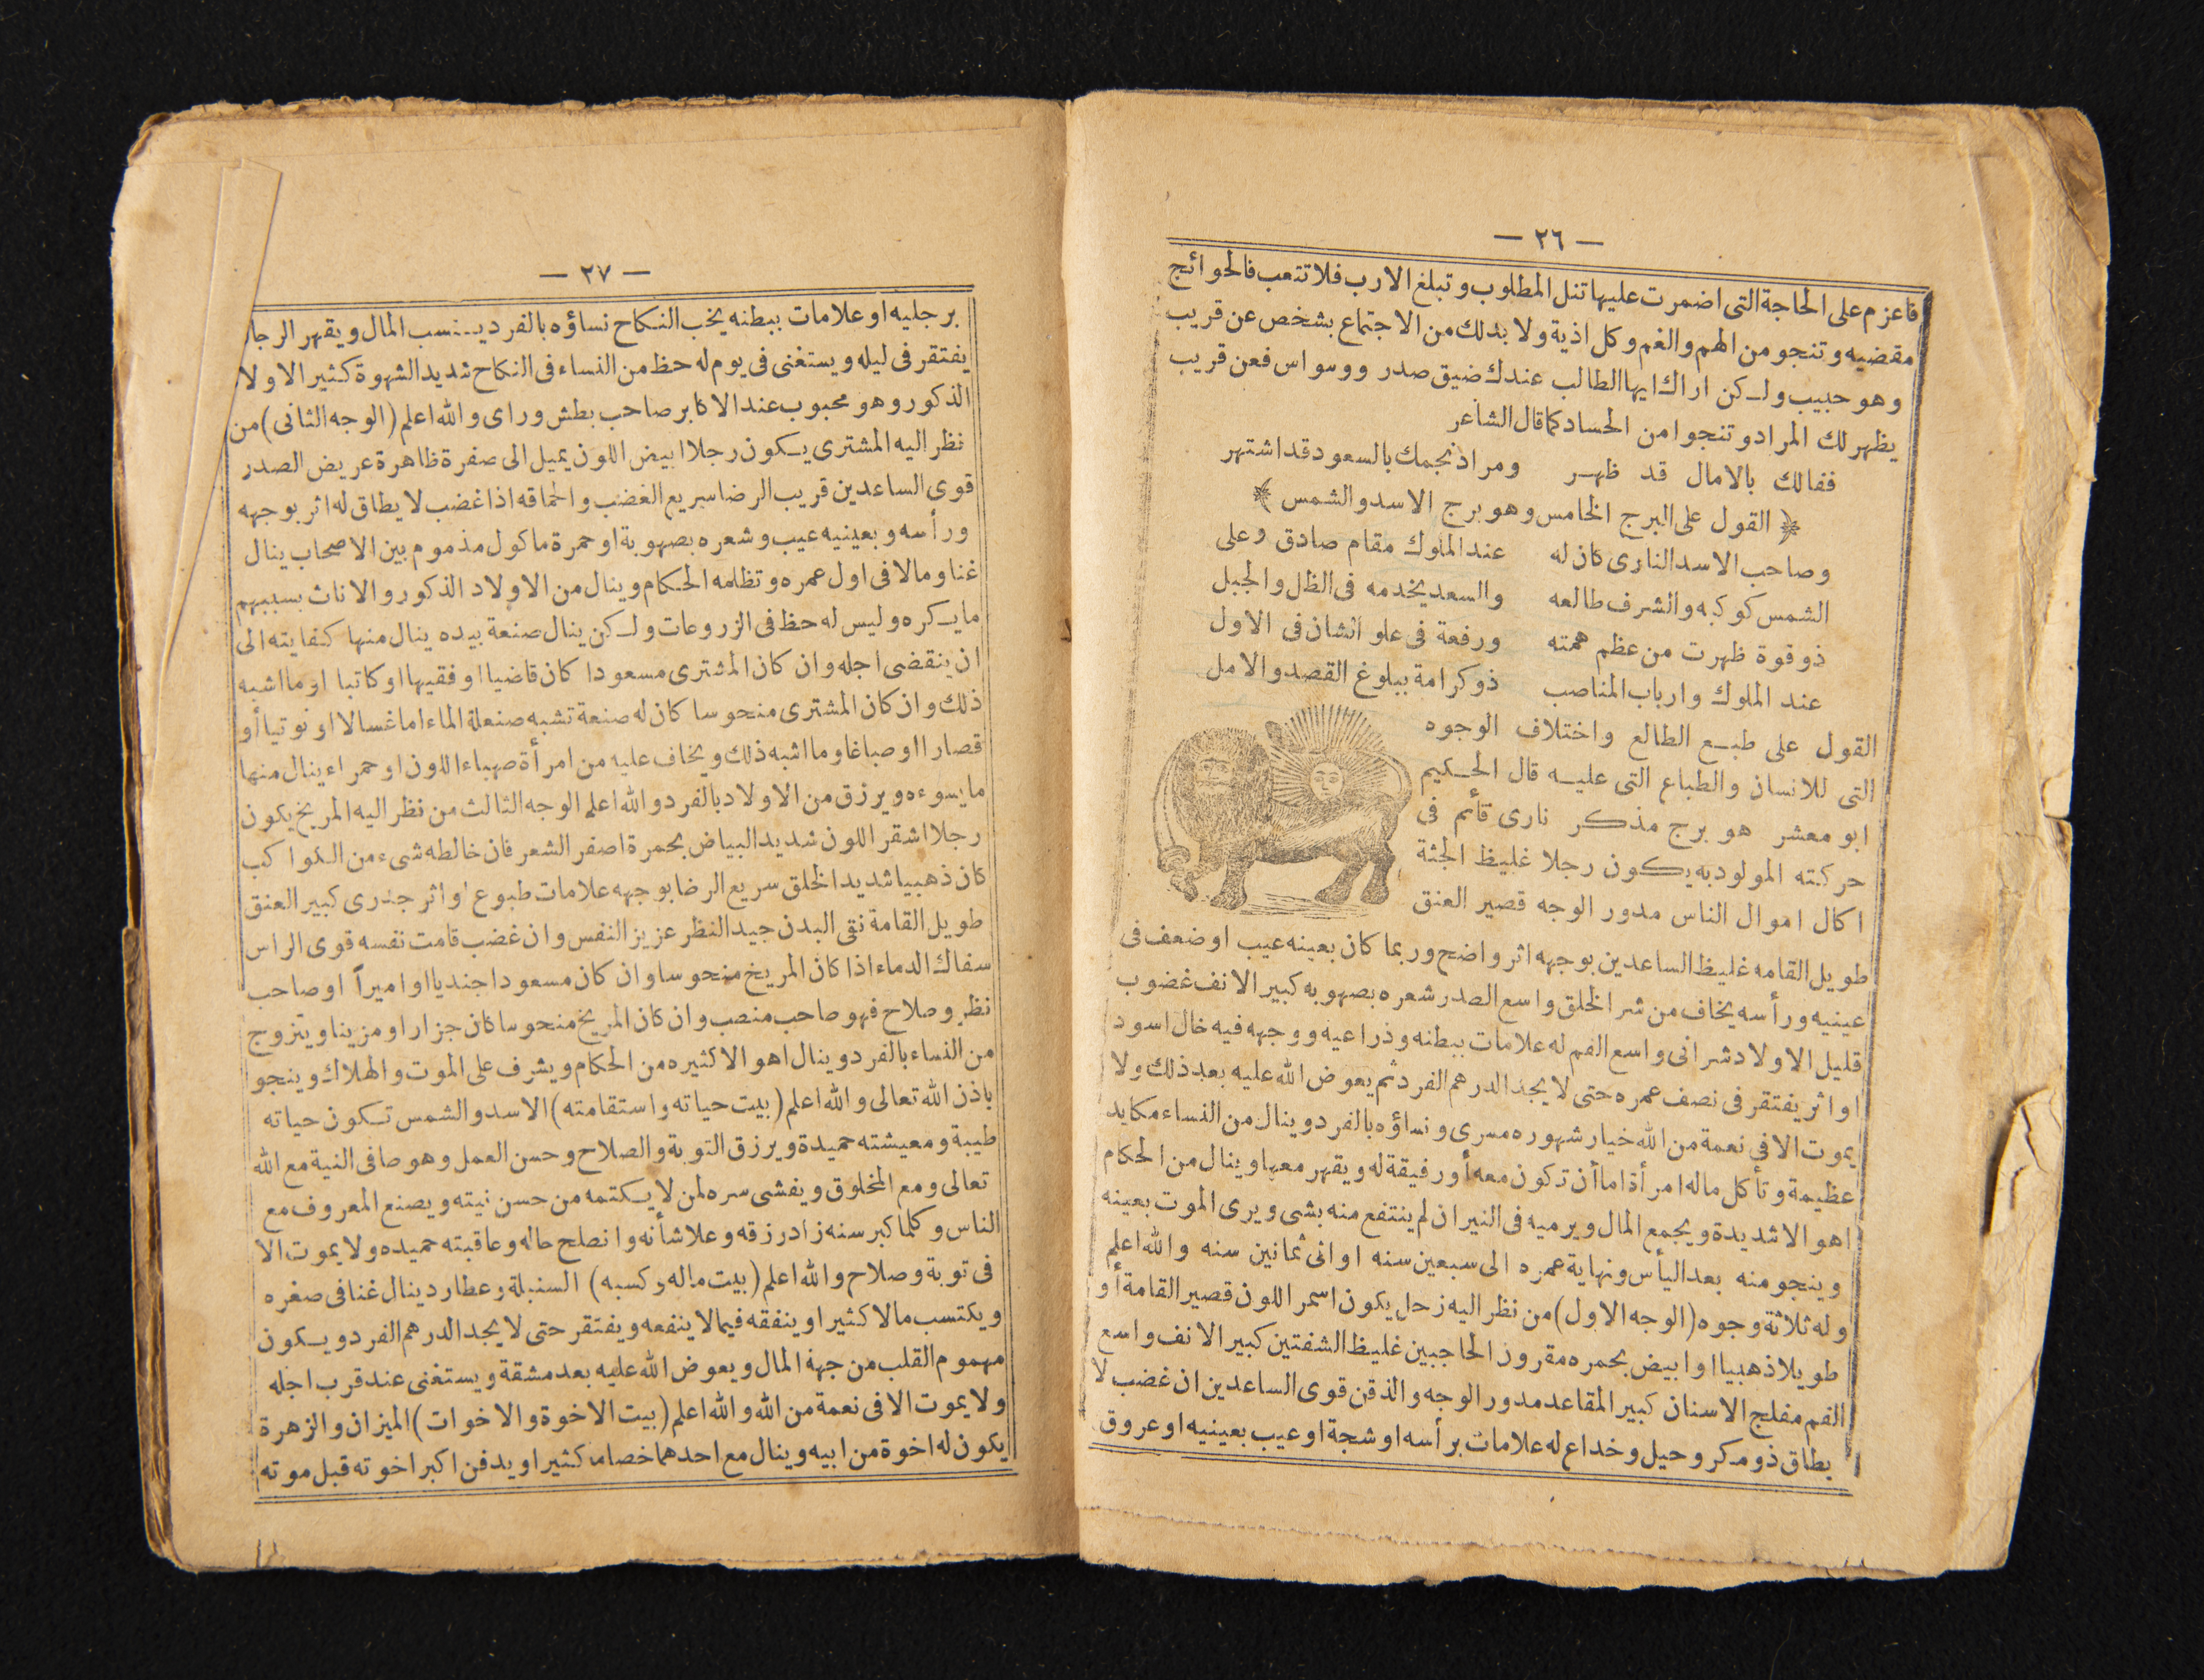 — ٢٦ —
فاعزم على الحاجة التى اضمرت عليها تنل المطلوب وتبلغ الارب فلا تتعب فالحوائج
مقضيه وتنجو من الهم والغم وكل اذية ولا بدلك من الاجتماع بشخص عن قريب
وهو حبيب ولكن اراك ايها الطالب عندك ضيق صدر ووسواس فعن قريب
يظهر لك المراد وتنجوا من الحساد كما قال الشاعر
ففالك بالامال قد ظهر ومراد نجمك بالسعود قد اشتهر
﴿ القول على البرج الخامس وهو برج الاسد والشمس ﴾
وصاحب الاسد النارى كان له عند الملوك مقام صادق وعلى
الشمس كوكبه والشرف طالعه والسعد يخدمه فى الظل والجبل
ذو قوة ظهرت من عظم همته ورفعة فى علو الشان فى الاول
عند الملوك وارباب المناصب ذو كرامة ببلوغ القصد والامل
القول على طبع الطالع واختلاف الوجوه
التى للانسان والطباع التى عليه قال الحكيم
ابو معشر هو برج مذكر نارى قأئم فى
حركته المولود به يكون رجلا غليظ الجثة
اكال اموال الناس مدور الوجه قصير العنق
طويل القامه غليظ الساعدين بوجهه اثر واضح وربما كان بعينه عيب او ضعف فى
عينيه ورأسه يخاف من شر الخلق واسع الصدر شعره بصهوبه كبير الانف غضوب
قليل الاولاد شرانى واسع الفم له علامات ببطنه وذراعيه ووجهه فيه خال اسود
او اثر يفتقر فى نصف عمره حتى لا يجد الدرهم الفرد ثم يعوض الله عليه بعد ذلك ولا
يموت الا فى نعمة من الله خيار شهوره مسرى ونساؤه بالفرد وينال من النساء مكايد
عظيمة وتأكل ماله امرأة اما أن تكون معه أو رفيقة له ويقهر معها وينال من الحكام
اهوالا شديدة ويجمع المال ويرميه فى النيران لم ينتفع منه بشى ويرى الموت بعينه
وينجو منه بعد اليأس ونهاية عمره الى سبعين سنه او الى ثمانين سنه والله اعلم
وله ثلاثة وجوه (الوجه الاول) من نظر اليه زحل يكون اسمر اللون قصير القامة أو
طويلا ذهبيا او ابيض بحمره مقرون الحاجبين غليظ الشفتين كبير الانف واسع
الفم مفلج الاسنان كبير المقاعد مدور الوجه والذقن قوى الساعدين ان غضب لا
يطاق ذو مكر وحيل وخداع له علامات برأسه او شجة او عيب بعينيه او عروق
— ٢٧ —
برجليه او علامات ببطنه يحب النكاح نساؤه بالفرد ينسب المال ويقهر الرجال
يفتقر فى ليله ويستغنى فى يوم له حظ من النساء فى النكاح شديد الشهوة كثير الاولاد
الذكور وهو محبوب عند الاكابر صاحب بطش وراى والله اعلم (الوجه الثانى) من
نظر اليه المشترى يكون رجلا ابيض اللون يميل الى صفرة ظاهرة عريض الصدر
قوى الساعدين قريب الرضا سريع الغضب والحماقه اذا غضب لا يطاق له اثر بوجهه
ورأسه وبعينيه عيب وشعره بصهوبة او حمرة ماكول مذموم بين الاصحاب ينال
غنا ومالا فى اول عمره وتظلمه الحكام وينال من الاولاد الذكور والاناث بسببهم
ما يكره وليس له حظ فى الزروعات ولكن ينال صنعة بيده ينال منها كفايته الى
ان ينقضى اجله وان كان المشترى مسعودا كان قاضيا او فقيها او كاتبا او ما اشبه
ذلك وان كان المشترى منحوسا كان له صنعة تشبه صنعلة الماء اما غسالا او نوتيا أو
قصارا او صباغا وما اشبه ذلك ويخاف عليه من امرأة صهباء اللون او حمراء ينال منها
ما يسوءه ويرزق من الاولاد بالفرد والله اعلم الوجه الثالث من نظر اليه المريخ يكون
رجلا اشقر اللون شديد البياض بحمرة اصفر الشعر فان خالطه شىء من الكواكب
كان ذهبيا شديد الخلق سريع الرضا بوجهه علامات طبوع او اثر جدرى كبير العنق
طويل القامة نقى البدن جيد النظر عزيز النفس وان غضب قامت نفسه قوى الراس
سفاك الدماء اذا كان المريخ منحوسا وان كان مسعودا جنديا او اميراً او صاحب
نظر وصلاح فهو صاحب منصب وان كان المريخ منحوسا كان جزارا ومزينا ويتزوج
من النساء بالفرد وينال اهوالا كثيره من الحكام ويشرف على الموت والهلاك وينجو
باذن الله تعالى والله اعلم (بيت حياته واستقامته) الاسد والشمس تكون حياته
طيبة ومعيشته حميدة ويرزق التوبة والصلاح وحسن العمل وهو صافى النية مع الله
تعالى ومع المخلوق ويفشى سره لمن لا يكتمه من حسن نيته ويصنع المعروف مع
الناس وكلما كبر سنه زاد رزقه وعلا شأنه وانصلح حاله وعاقبته حميده ولا يموت الا
فى توبة وصلاح والله اعلم (بيت ماله وكسبه) السنبلة وعطارد ينال غنا فى صغره
ويكتسب مالا كثيرا وينفقه فيما لا ينفعه ويفتقر حتى لا يجد الدرهم الفرد ويكون
مهموم القلب من جهة المال ويعوض الله عليه بعد مشقة ويستغنى عند قرب اجله
ولا يموت الا فى نعمة من الله والله اعلم (بيت الاخوة والاخوات) الميزان والزهرة
يكون له اخوة من ابيه وينال مع احدهما خصاما كثيرا ويدفن اكبر اخوته قبل موته